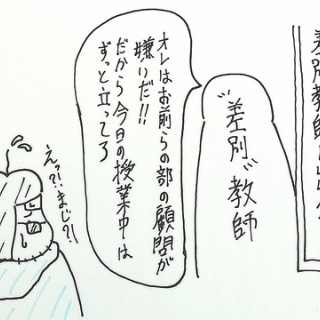 差別教師
"差別"教師
オレはお前らの部の顧問が
嫌いだ!!
だから今日の授業中は
ずっと立ってろ
えっ?!まじ?!